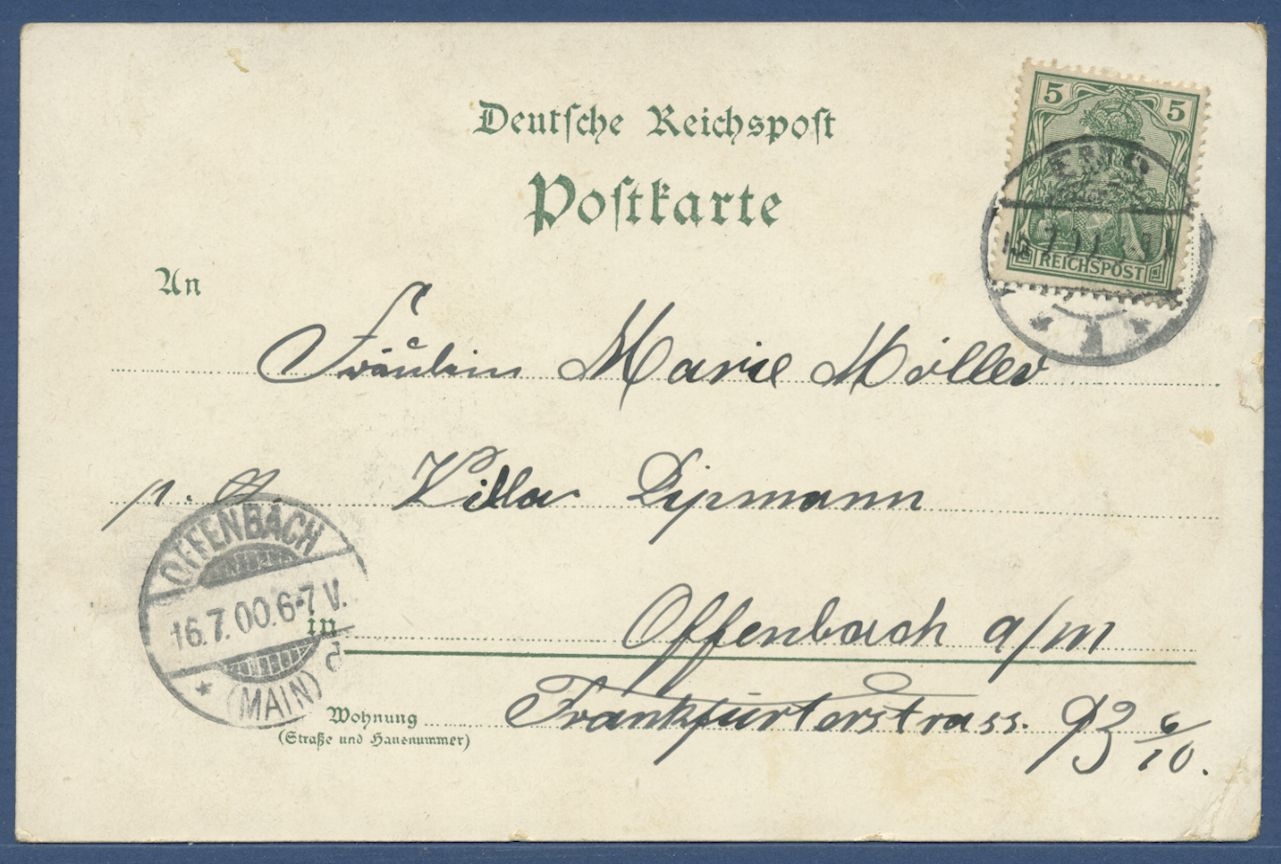 Deutsche Reichspost
Postkarte
5 5
REICHSPOST
An
Fräulein Marie Möller
Villa Lipmann
OFFENBACH
16.7.00.6-7 V.
(MAIN)
in Offenbach a/m
Wohnung Frankfurterstrass. 93
(Straße und Hausnummer)